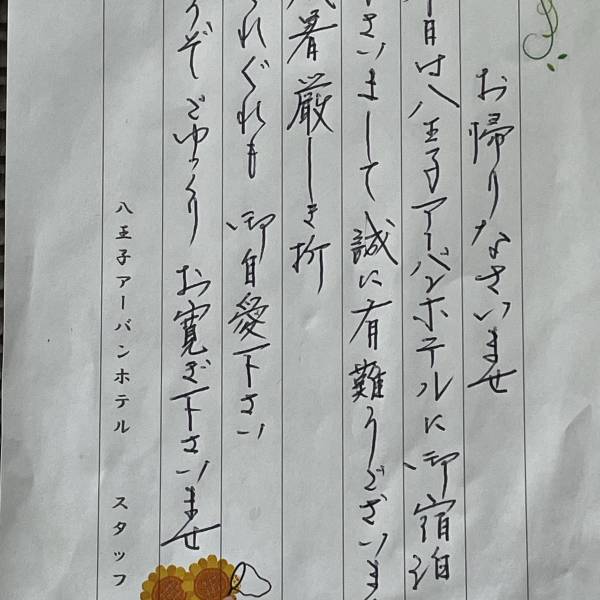 お帰りなさいませ
日は八王子アーバンホテルに御宿泊
さいまして誠に有難うございま
暑厳しき折
れぐれも 御自愛下さい
うぞごゆっくり お寛ぎ下さいませ
八王子アーバンホテル スタッフ